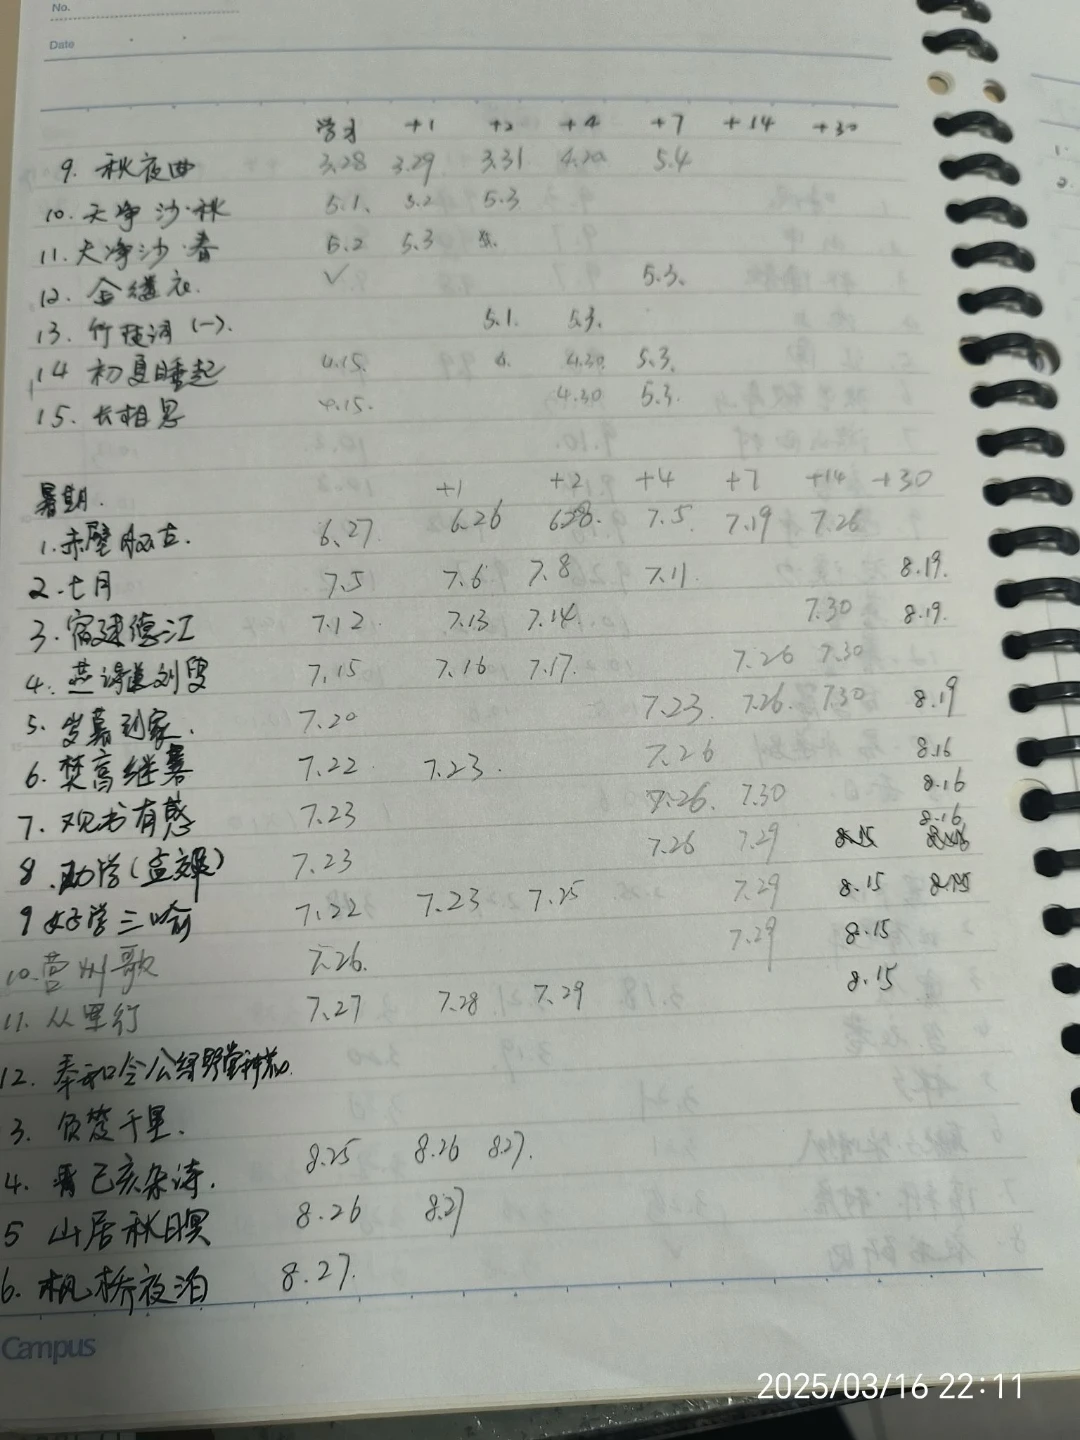 No.
Date
学习 +1 +2 +4 +7 +14 +30
9. 秋夜曲 3.28 3.29 3.31 4.20 5.4
10. 天净沙·秋 5.1. 5.2 5.3
11. 天净沙·春 5.2 5.3
12. 金缕衣. ✓ 5.3.
13. 竹枝词(一). 5.1. 5.3.
14 初夏睡起 4.15. 4. 4.30 5.3.
15. 长相思 4.15. 4.30 5.3.
暑期. +1 +2 +4 +7 +14 +30
1. 赤壁怀古. 6.27. 6.26 6.28. 7.5. 7.19 7.26
2. 七月 7.5 7.6 7.8 7.11. 8.19.
3. 宿建德江 7.12. 7.13 7.14. 7.30 8.19.
4. 7.15 7.16 7.17. 7.26 7.30
5. 岁暮到家. 7.20 7.23. 7.26. 7.30 8.19
6. 焚膏继晷 7.22. 7.23. 7.26 8.16
7. 观书有感 7.23 7.26. 7.30 8.16
8. 劝学(孟郊) 7.23 7.26 7.29 8.15 8.16
9 好学三喻 7.22 7.23 7.25 7.29 8.15 8.15
10. 营州歌 7.26. 7.29 8.15
11. 从军行 7.27 7.28 7.29 8.15
12. 奉和令公绿野堂种花.
3. 负笈千里.
4. 己亥杂诗. 8.25 8.26 8.27.
5 山居秋暝 8.26 8.27
6. 枫桥夜泊 8.27.
Campus
2025/03/16 22:11